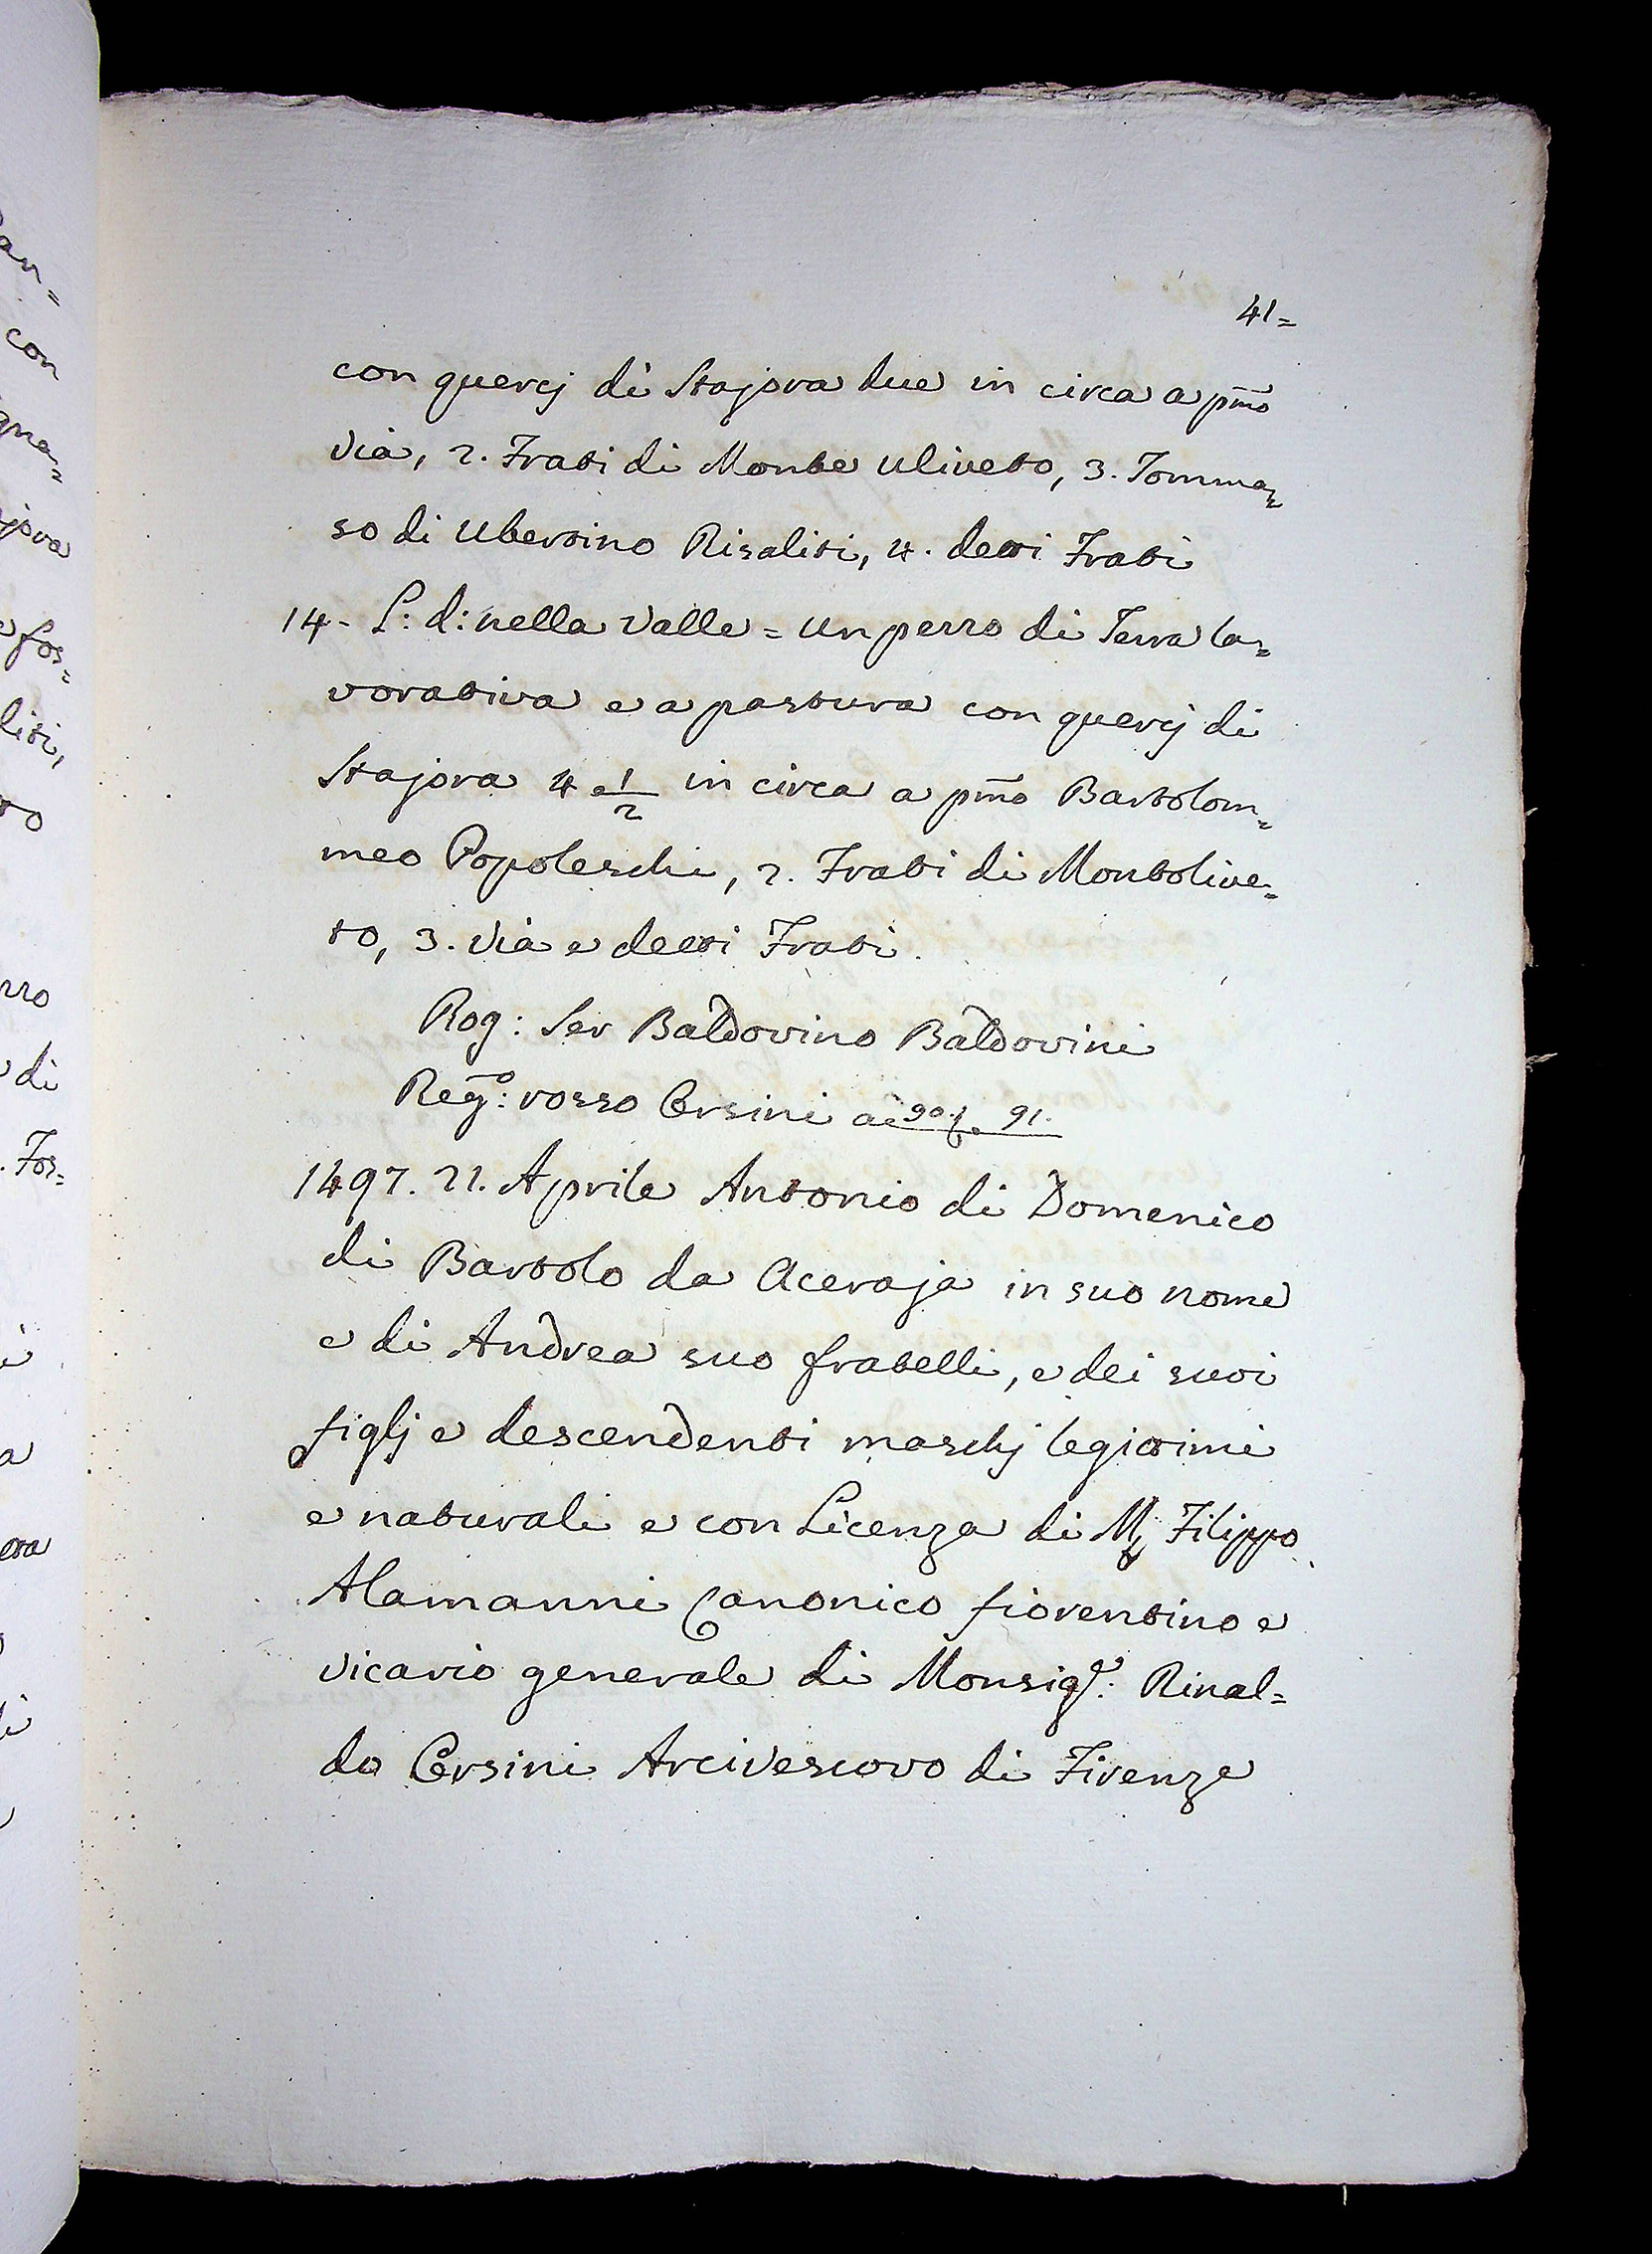 41=
con quercj di Stajora due in circa a pmo
via, 2. Frati di Monte uliveto, 3. Tomma=
so di Ubertino Risaliti, 4. detti Frati
14- L: d: nella Valle = un pezzo di Terra la=
vorativa e a pastura con quercj di
Stajora 4 e 1/2 in circa a pmo Bartolom=
meo Popoleschi, 2. Frati di Montolive=
to, 3. Via e detti Frati.
Rog: Ser Baldovino Baldovini
Rego: rosso Orsini a 90. f. 91.
1497. 21. Aprile Antonio di Domenico
di Bartolo da Aceraja in suo nome
e di Andrea suo fratelli, e dei suoi
figlj e descendenti maschj legittimi
e naturali e con Licenza di M Filippo
Alamanni Canonico fiorentino e
vicario generale di Monsigr: Rinal=
do Orsini Arcivescovo di Firenze
an=
con
gna=
jora
e fos=
liti,
to
zzo
di
. Fos=